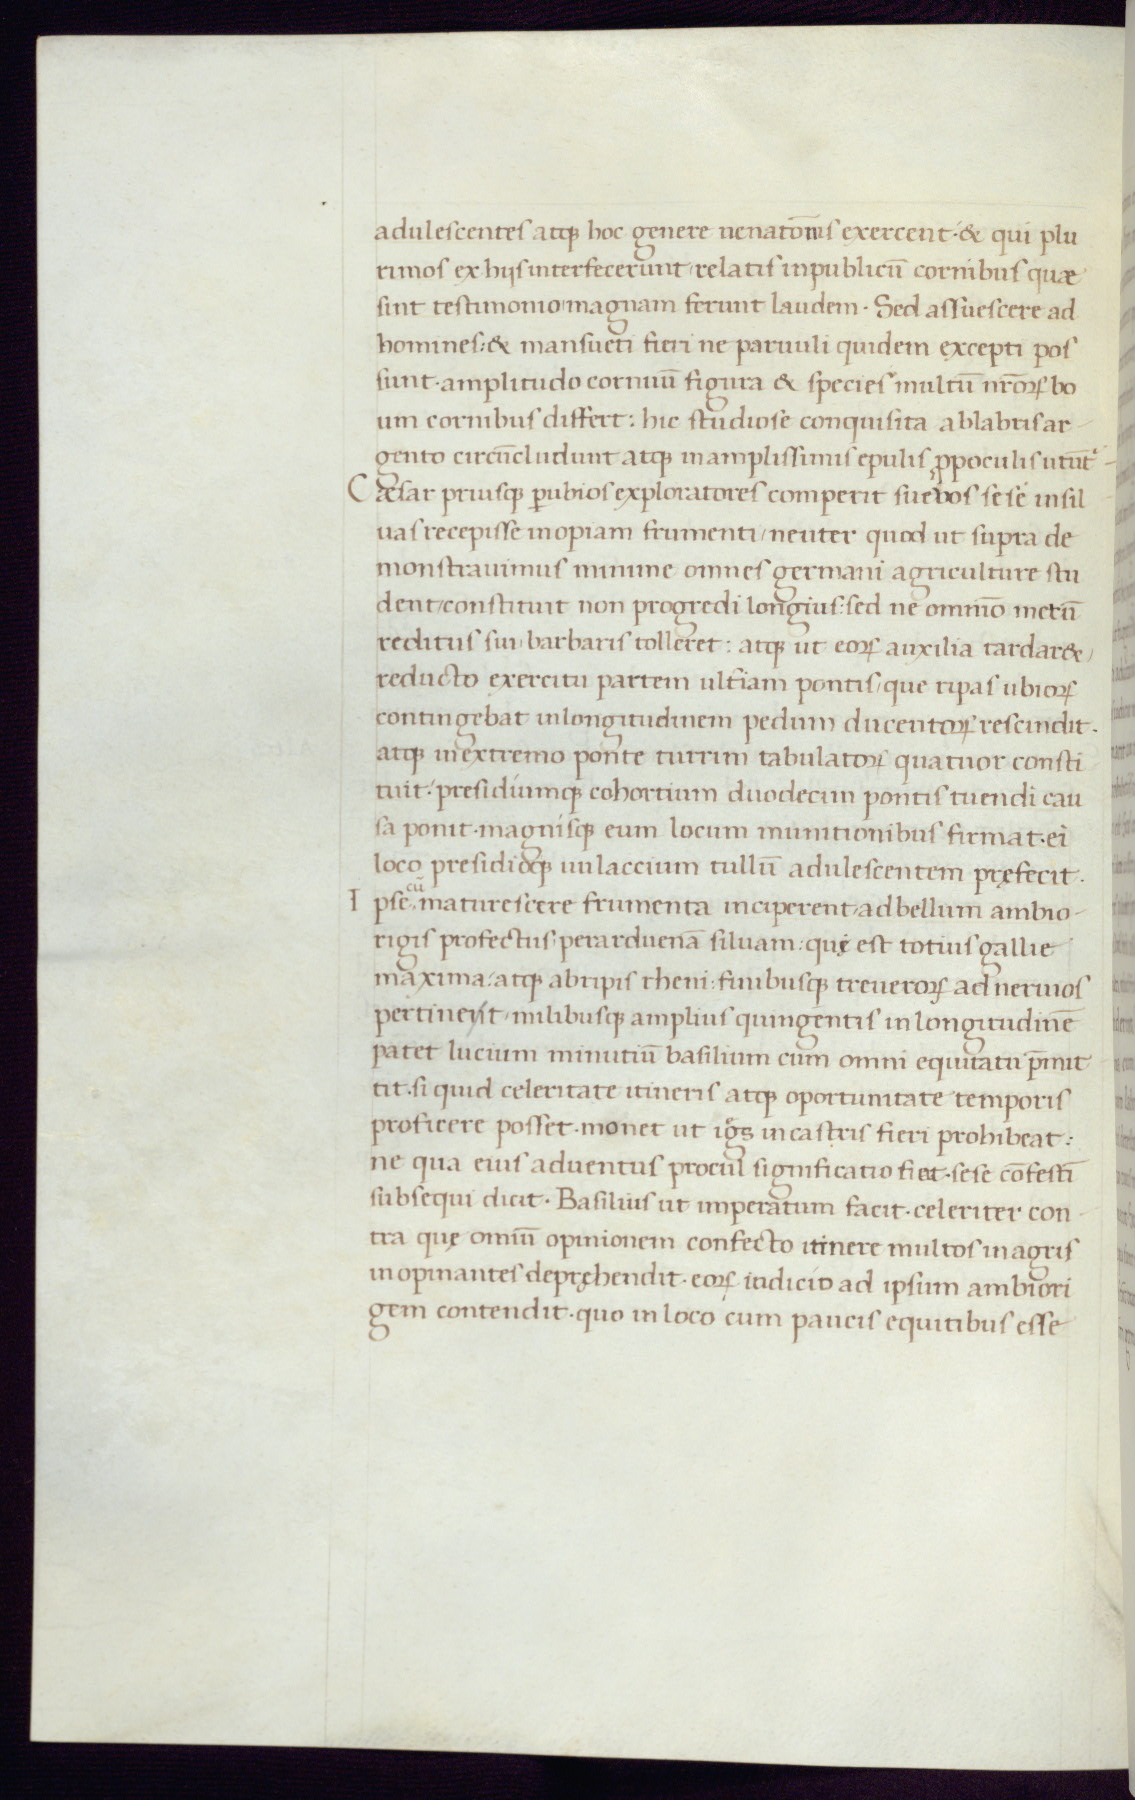 adulescentes atq; hoc genere uenatōnis exercent · & qui plu
rimos ex hijs interfecerunt / relatis in publicū cornibus quæ
sint testimonio / magnam ferunt laudem · Sed assuescere ad
homines : & mansueti fieri ne paruuli quidem excepti pos
sunt · amplitudo cornuū figura & species multū nr̄oꝝ bo
um cornibus differt : hic studiose conquisita ablabris ar-
gento circūcludunt atq; in amplissimis epulis ꝓ poculis utunt᷑
Cæsar priusq; ꝑ ubios exploratores comperit sueuos sese in sil
uas recepisse inopiam frumenti / ueuter quod ut supra de
monstrauimus minime omnes germani agriculture stu
dent / constituit non progredi longius : sed ne omnīo metū
reditus sui / barbaris tolleret : atq; ut eoꝝ auxilia tardar& /
reducto exercitu partem ultīam pontis / que ripas ubioꝝ
contingebat in longitudinem pedum ducentoꝝ rescindit ·
atq; in extremo ponte turrim tabulatoꝝ quatuor consti
tuit : presidiumq; cohortium duodecim pontis tuendi cau
sa ponit · magnisq; eum locum munitionibus firmat · ei
loco presidioq; uulaccium tullū adulescentem pręfecit ·
Ipse cū maturescere frumenta inciperent / ad bellum ambio-
rigis profectus / per arduenā siluam : quę est totius gallie
maxima / atq; ab ripis rheni : finibusq; treueroꝝ ad neruios
pertineist / milibusq; amplius quingentis in longitudinē
patet lucium minutiū basilium cum omni equitatu p̄mit
tit · si quid celeritate itineris atq; oportunitate temporis
proficere posset · monet ut igs in castris fieri prohibeat :
ne qua eius aduentus procul significatio fieat · sese cōfestī
subsequi dicit · Basilius ut imperatum facit · celeriter con-
tra quę omīū opinionem confecto itinere multos in agris
inopinantes depręhendit · eoꝝ iudicio ad ipsum ambiori
gem contendit · quo in loco cum paucis equitibus esse